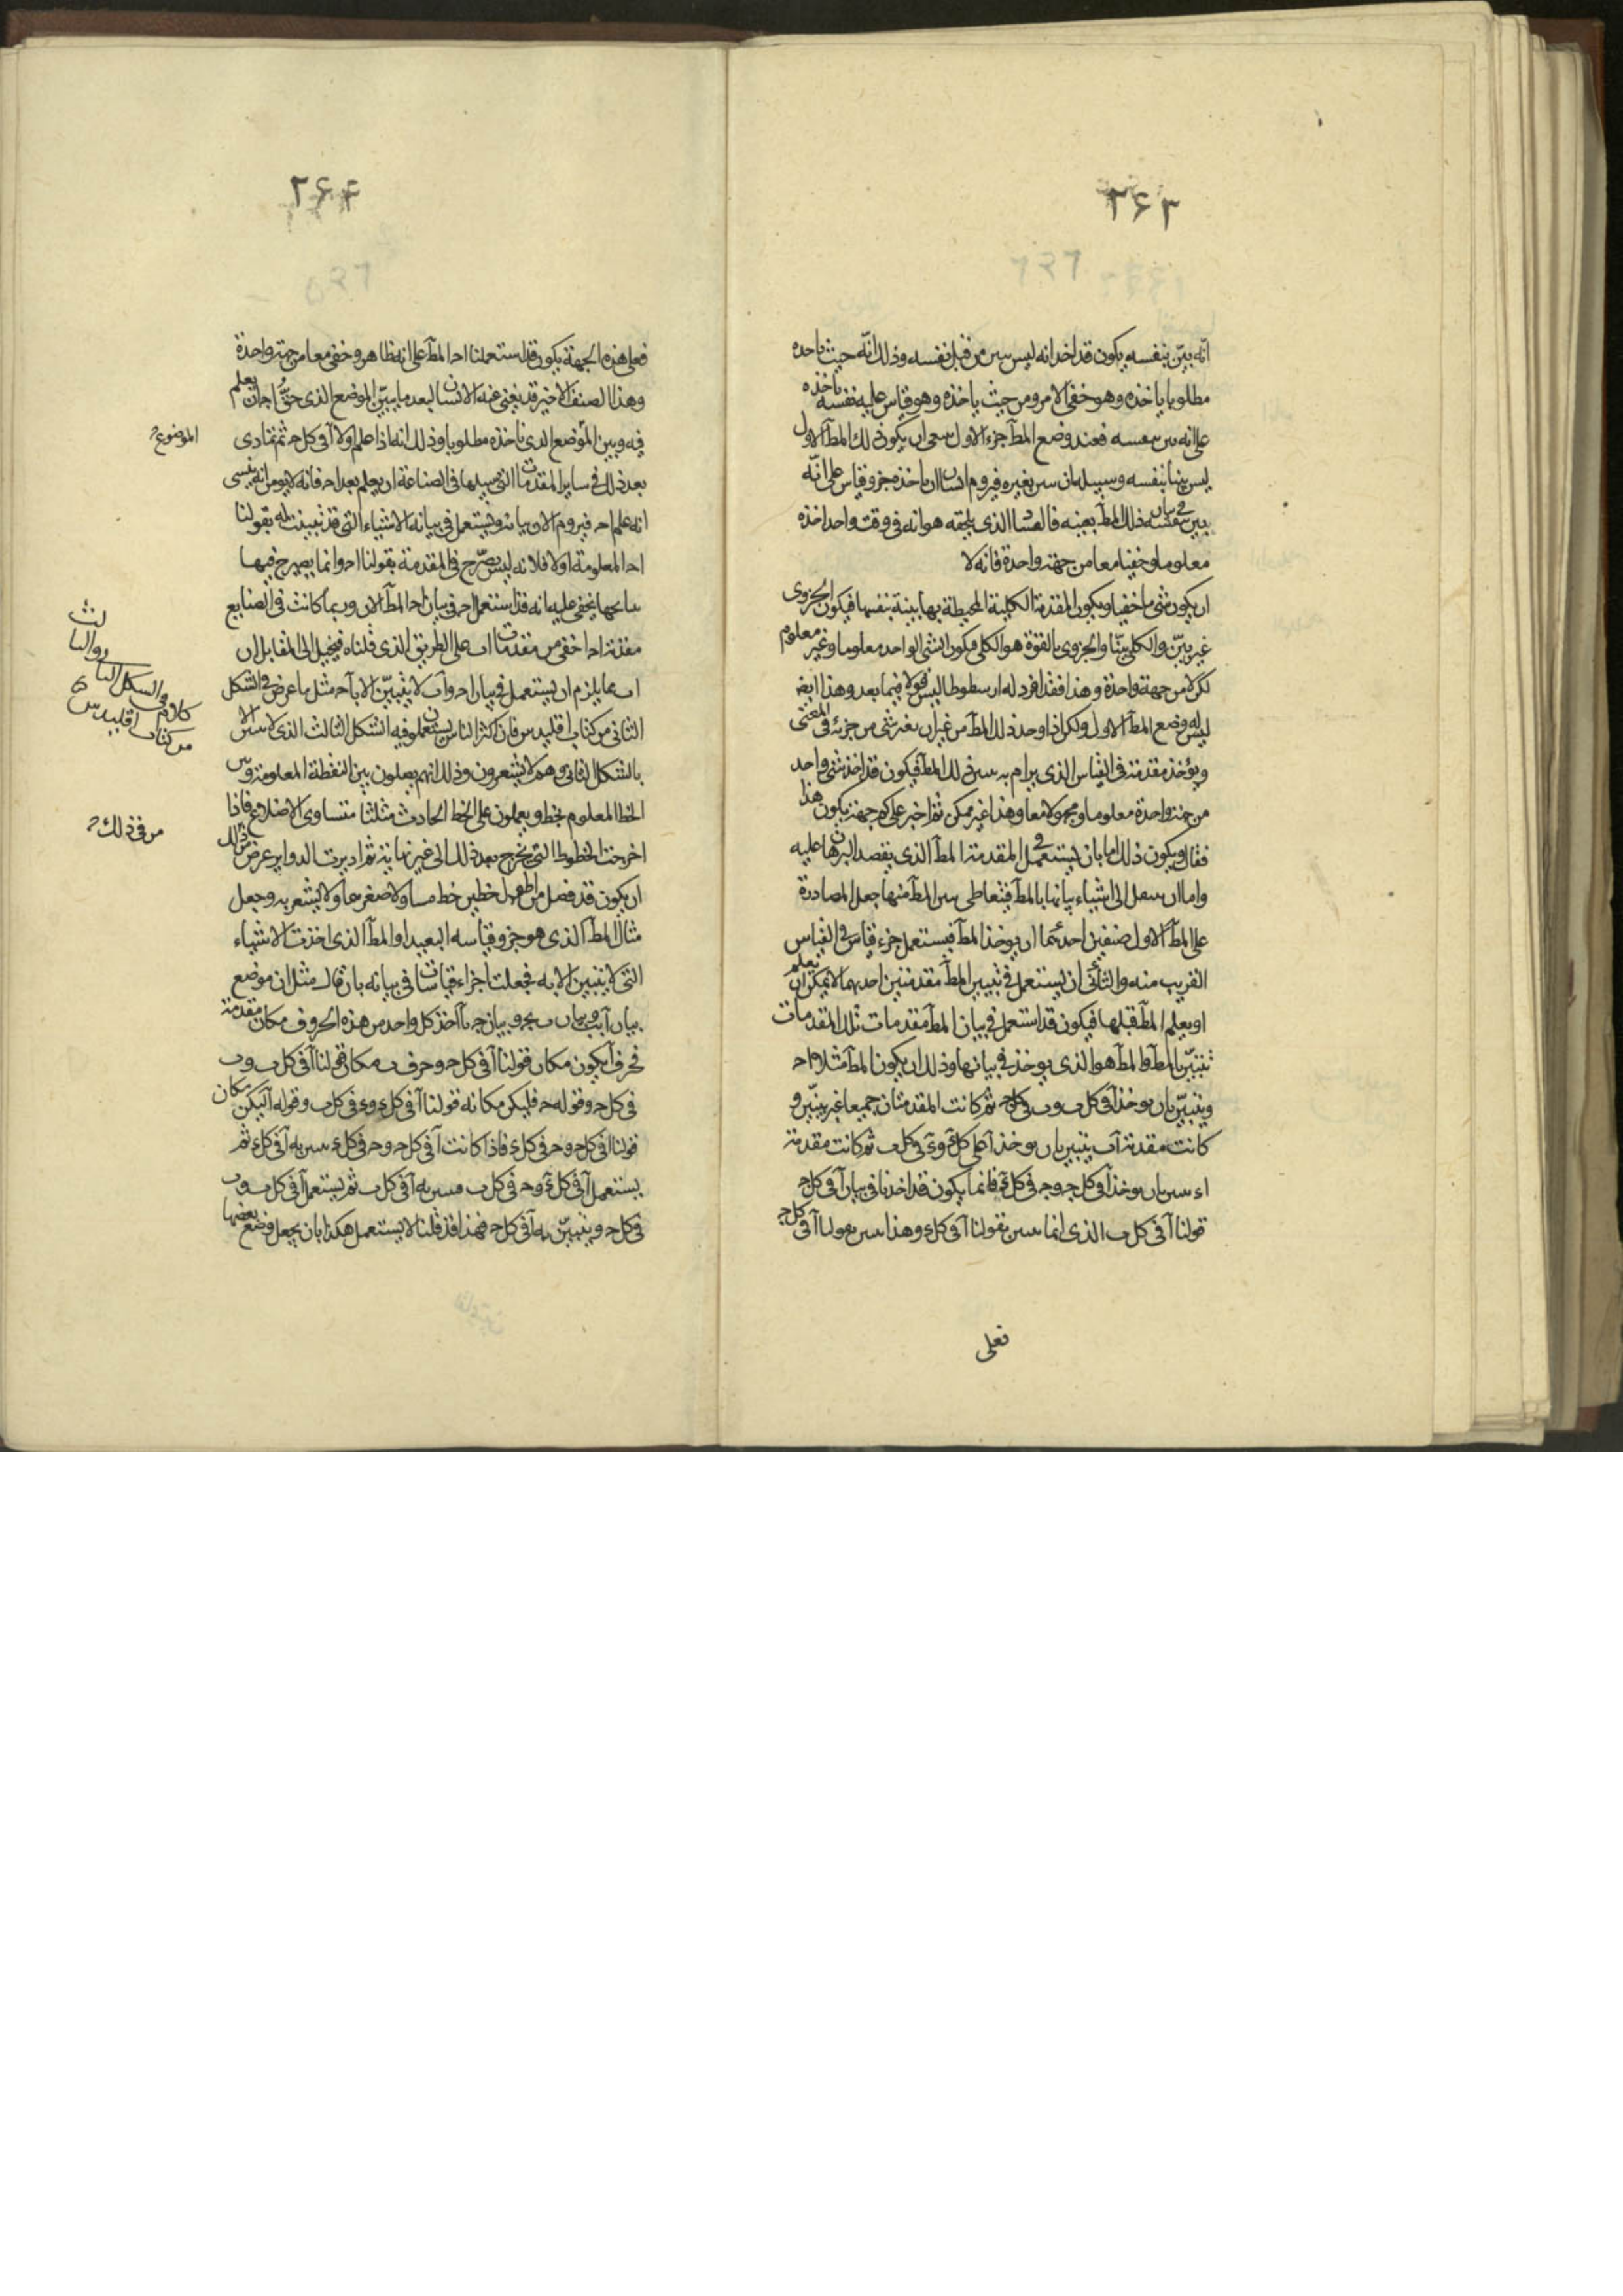 ٢٦٣
انّه بيّن بنفسه يكون قد اخذ انه ليس من قبل نفسه وذلك انّه حيث ياخذه
مطلوبا ياخذه وهو خفى الامر ومن حيث ياخذه وهو قياس عليه نفسه ياخذه
على انه بنفسه فعند وضع المطَ جزء الاول ان يكون ذلك المطَ الاول
ليس بينا بنفسه وسبيله ان بغيره فيروم انسان ان ياخذه جزو قياس على انّه
بنفسه فى بيان ذلك المطَ بعينه الذى يلحقه هو انه فى وقت واحد اخذه
معلوما وخفيا معا من جهة واحدة فانه لا
ان يكون شى ما خفيا ويكون المقدمة الكلية المحيطة بها بينة بنفسها فيكون الجزوى
غير بيّن والكلى بيّنا والجزوى بالقوة هو الكلى فيكون الشى الواحد معلوما وغير معلوم
لكن لا من جهة واحدة وهذا فقد افرد له ارسطوطاليس قولا فيما بعد وهذا ايضَ
ليس له وضع المطَ الاول ولكن اذا وجد ذلك المطَ من غير ان يغير شى من جزئه فى المعنى
ويؤخذ مقدمة فى القياس الذى يرام به ذلك المطَ فيكون قد اخذ شى واحد
من جهة واحدة معلوما ومجهولا معا وهذا غير ممكن ثم اخبر على كم جهة يكون هذا
فقال ويكون ذلك اما بان يستعمل فى المقدمة المطَ الذى يقصد البرهان عليه
واما ان الى اشياء بيانها بالمطَ فيتعاطى المطَ منها جعل المصادرة
على المطَ الاول صنفين احدهما ان يوخذ المطَ فيستعمل جزء قياس فى القياس
القريب منه والثانى ان يستعمل فى تبيين المطَ مقدمتين احديهما لا يمكن ان يعلم
او يعلم المطَ قبلها فيكون قد استعمل فى بيان المطَ مقدمات تلك المقدمات
تتبيّن بالمطَ والمطَ هو الذى يوخذ فى بيانها وذلك ان يكون المطَ مثلا اح
ويتبيّن بان يوخذ آ فى كل ب وب فى كل ح ثم كانت المقدمتان جميعا غير بيّنتين و
كانت مقدمة اَب يتبين بان يوخذ آ على كل ء وء فى كل ب ثم كانت مقدمة
اء بان يوخذ آ فى كل ح وح فى كل ء فانما يكون قد اخذنا فى بيان آ فى كل ح
قولنا آ فى كل ب الذى انما بقولنا آ فى كل ء وهذا بقولنا آ فى كل ح
فعلى
٢٦٤
فعلى هذه الجهة يكون قد استعملنا اح المطَ على انه ظاهر وخفى معا من جهة واحدة
وهذا الصنف الاخير قد يغبى عنه الانسان لبعد ما بيّن الموضع الذى حقّ اح ان يعلم
فيه وبين الموضع الذى ناخذه مطلوبا وذلك انه اذا علم اولا آ فى كل ح ثم تمادى
بعد ذلك فى ساير المقدمات التى سبيلها فى الصناعة ان يعلم بعد اح فانه لا يومن انه ينسى
انه علم اح فيروم الان بيانه ويستعمل فى بيانه الاشياء التى قد تبينت له بقولنا
اح المعلومة اولا فلانه ليس يصّرح فى المقدمة بقولنا اح وانما يصرح فيها
بنتائجها يخفى عليه انه قد استعمل اح فى بيان اح المطَ الان وربما كانت فى الصنايع
مقدمة اح اخفى من مقدمات اب على الطريق الذى قلناه فيخيل الى المقابل ان
اب مما يلزم ان يستعمل فى بيان اح واَب لا يتبيّن الا باَح مثل ما عرض فى الشكل
الثانى من كتاب اقليدس فان اكثر الناس يستعملون فيه الشكل الثالث الذى لا الا
بالشكل الثانى وهم لا يشعرون وذلك انهم يصلون بين النقطة المعلومة وبين
الخط المعلوم بخط ويعملون على الخط الحادث مثلثا متساوى الاضلاع فاذا
اخرجت الخطوط التى تخرج بعد ذلك الى غير نهاية ثم اديرت الدواير عرض من ذلك
ان يكون قد فصل من اطول خطين خط مساو لاصغرهما ولا يشعر به وجعل
مثال المطَ الذى هو جزو قياسه البعيد او المطَ الذى اخذت الاشياء
التى لا يتبين الا به فجعلت اجزاء قياسات فى بيانه بان قال مثل ان موضع
بيان آ بب وبيان ب بجَ وبيان ج بآ اخذ كل واحد من هذه الحروف مكان مقدمة
فحرف آ يكون مكان قولنا آ فى كل ح وحرف ب مكان قولنا آ فى كل ب وب
فى كل ح وقوله ح فليكن مكانه قولنا آ فى كل ء وء فى كل ب وقوله آ ليكن مكان
قولنا آ فى كل ح وح فى كل ء فاذا كانت آ فى كل ح وح فى كل ء به آ فى كل ء ثم
يستعمل آ فى كل ء وح فى كل ب به آ فى كل ب ثم يستعمل آ فى كل ب وب
فى كل ح ويتبيّن به آ فى كل ح فهذا قد قلنا لا يستعمل هكذا بان يجعل وضع بعضها
الموضوع
كلام فى الشكل
من كتاب اقليدس
من فى ذلك